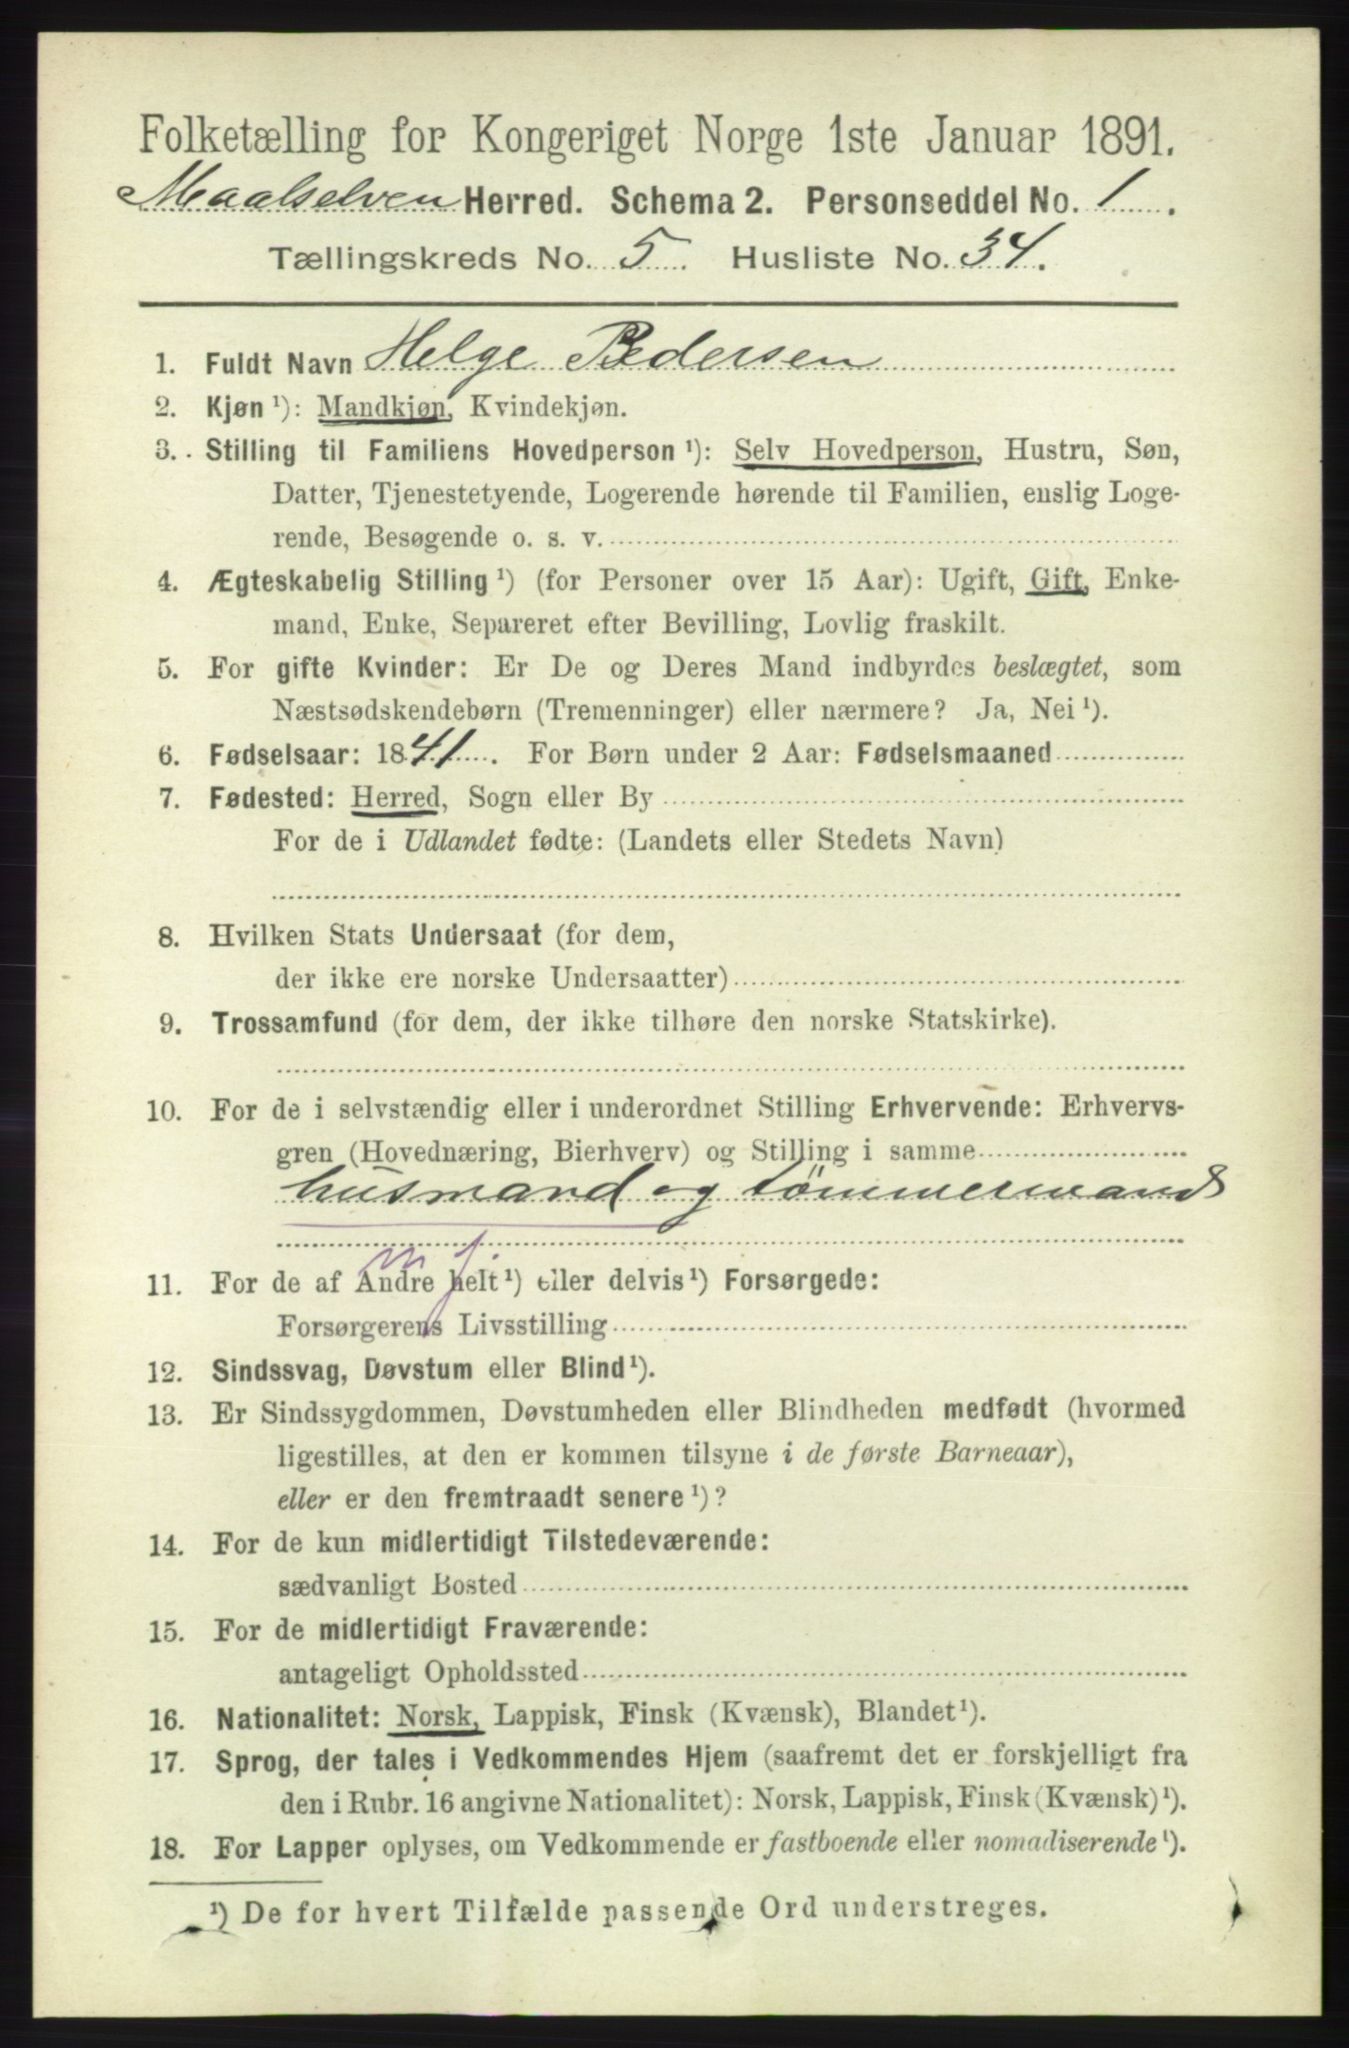 Folketælling for Kongeriget Norge 1ste Januar 1891.
Maalselven Herred. Schema 2. Personseddel No. 1.
Tællingskreds No. 5. Husliste No. 34.
1. Fuldt Navn Helge Pedersen
2. Kjøn ¹): Mandkjøn, Kvindekjøn.
3. Stilling til Familiens Hovedperson ¹): Selv Hovedperson, Hustru, Søn,
Datter, Tjenestetyende, Logerende hørende til Familien, enslig Loge-
rende, Besøgende o. s. v.
4. Ægteskabelig Stilling ¹) (for Personer over 15 Aar): Ugift, Gift, Enke-
mand, Enke, Separeret efter Bevilling, Lovlig fraskilt.
5. For gifte Kvinder: Er De og Deres Mand indbyrdes beslægtet, som
Næstsødskendebørn (Tremenninger) eller nærmere? Ja, Nei ¹).
6. Fødselsaar: 1841. For Børn under 2 Aar: Fødselsmaaned
7. Fødested: Herred, Sogn eller By
For de i Udlandet fødte: (Landets eller Stedets Navn)
8. Hvilken Stats Undersaat (for dem,
der ikke ere norske Undersaatter)
9. Trossamfund (for dem, der ikke tilhøre den norske Statskirke).
10. For de i selvstændig eller i underordnet Stilling Erhvervende: Erhvervs-
gren (Hovednæring, Bierhverv) og Stilling i samme
husmand og tömmermand
m j
11. For de af Andre helt ¹) eller delvis ¹) Forsørgede:
Forsørgerens Livsstilling
12. Sindssvag, Døvstum eller Blind ¹).
13. Er Sindssygdommen, Døvstumheden eller Blindheden medfødt (hvormed
ligestilles, at den er kommen tilsyne i de første Barneaar),
eller er den fremtraadt senere ¹)?
14. For de kun midlertidigt Tilstedeværende:
sædvanligt Bosted
15. For de midlertidigt Fraværende:
antageligt Opholdssted
16. Nationalitet: Norsk, Lappisk, Finsk (Kvænsk), Blandet ¹).
17. Sprog, der tales i Vedkommendes Hjem (saafremt det er forskjelligt fra
den i Rubr. 16 angivne Nationalitet): Norsk, Lappisk, Finsk (Kvænsk) ¹).
18. For Lapper oplyses, om Vedkommende er fastboende eller nomadiserende ¹).
¹) De for hvert Tilfælde passende Ord understreges.